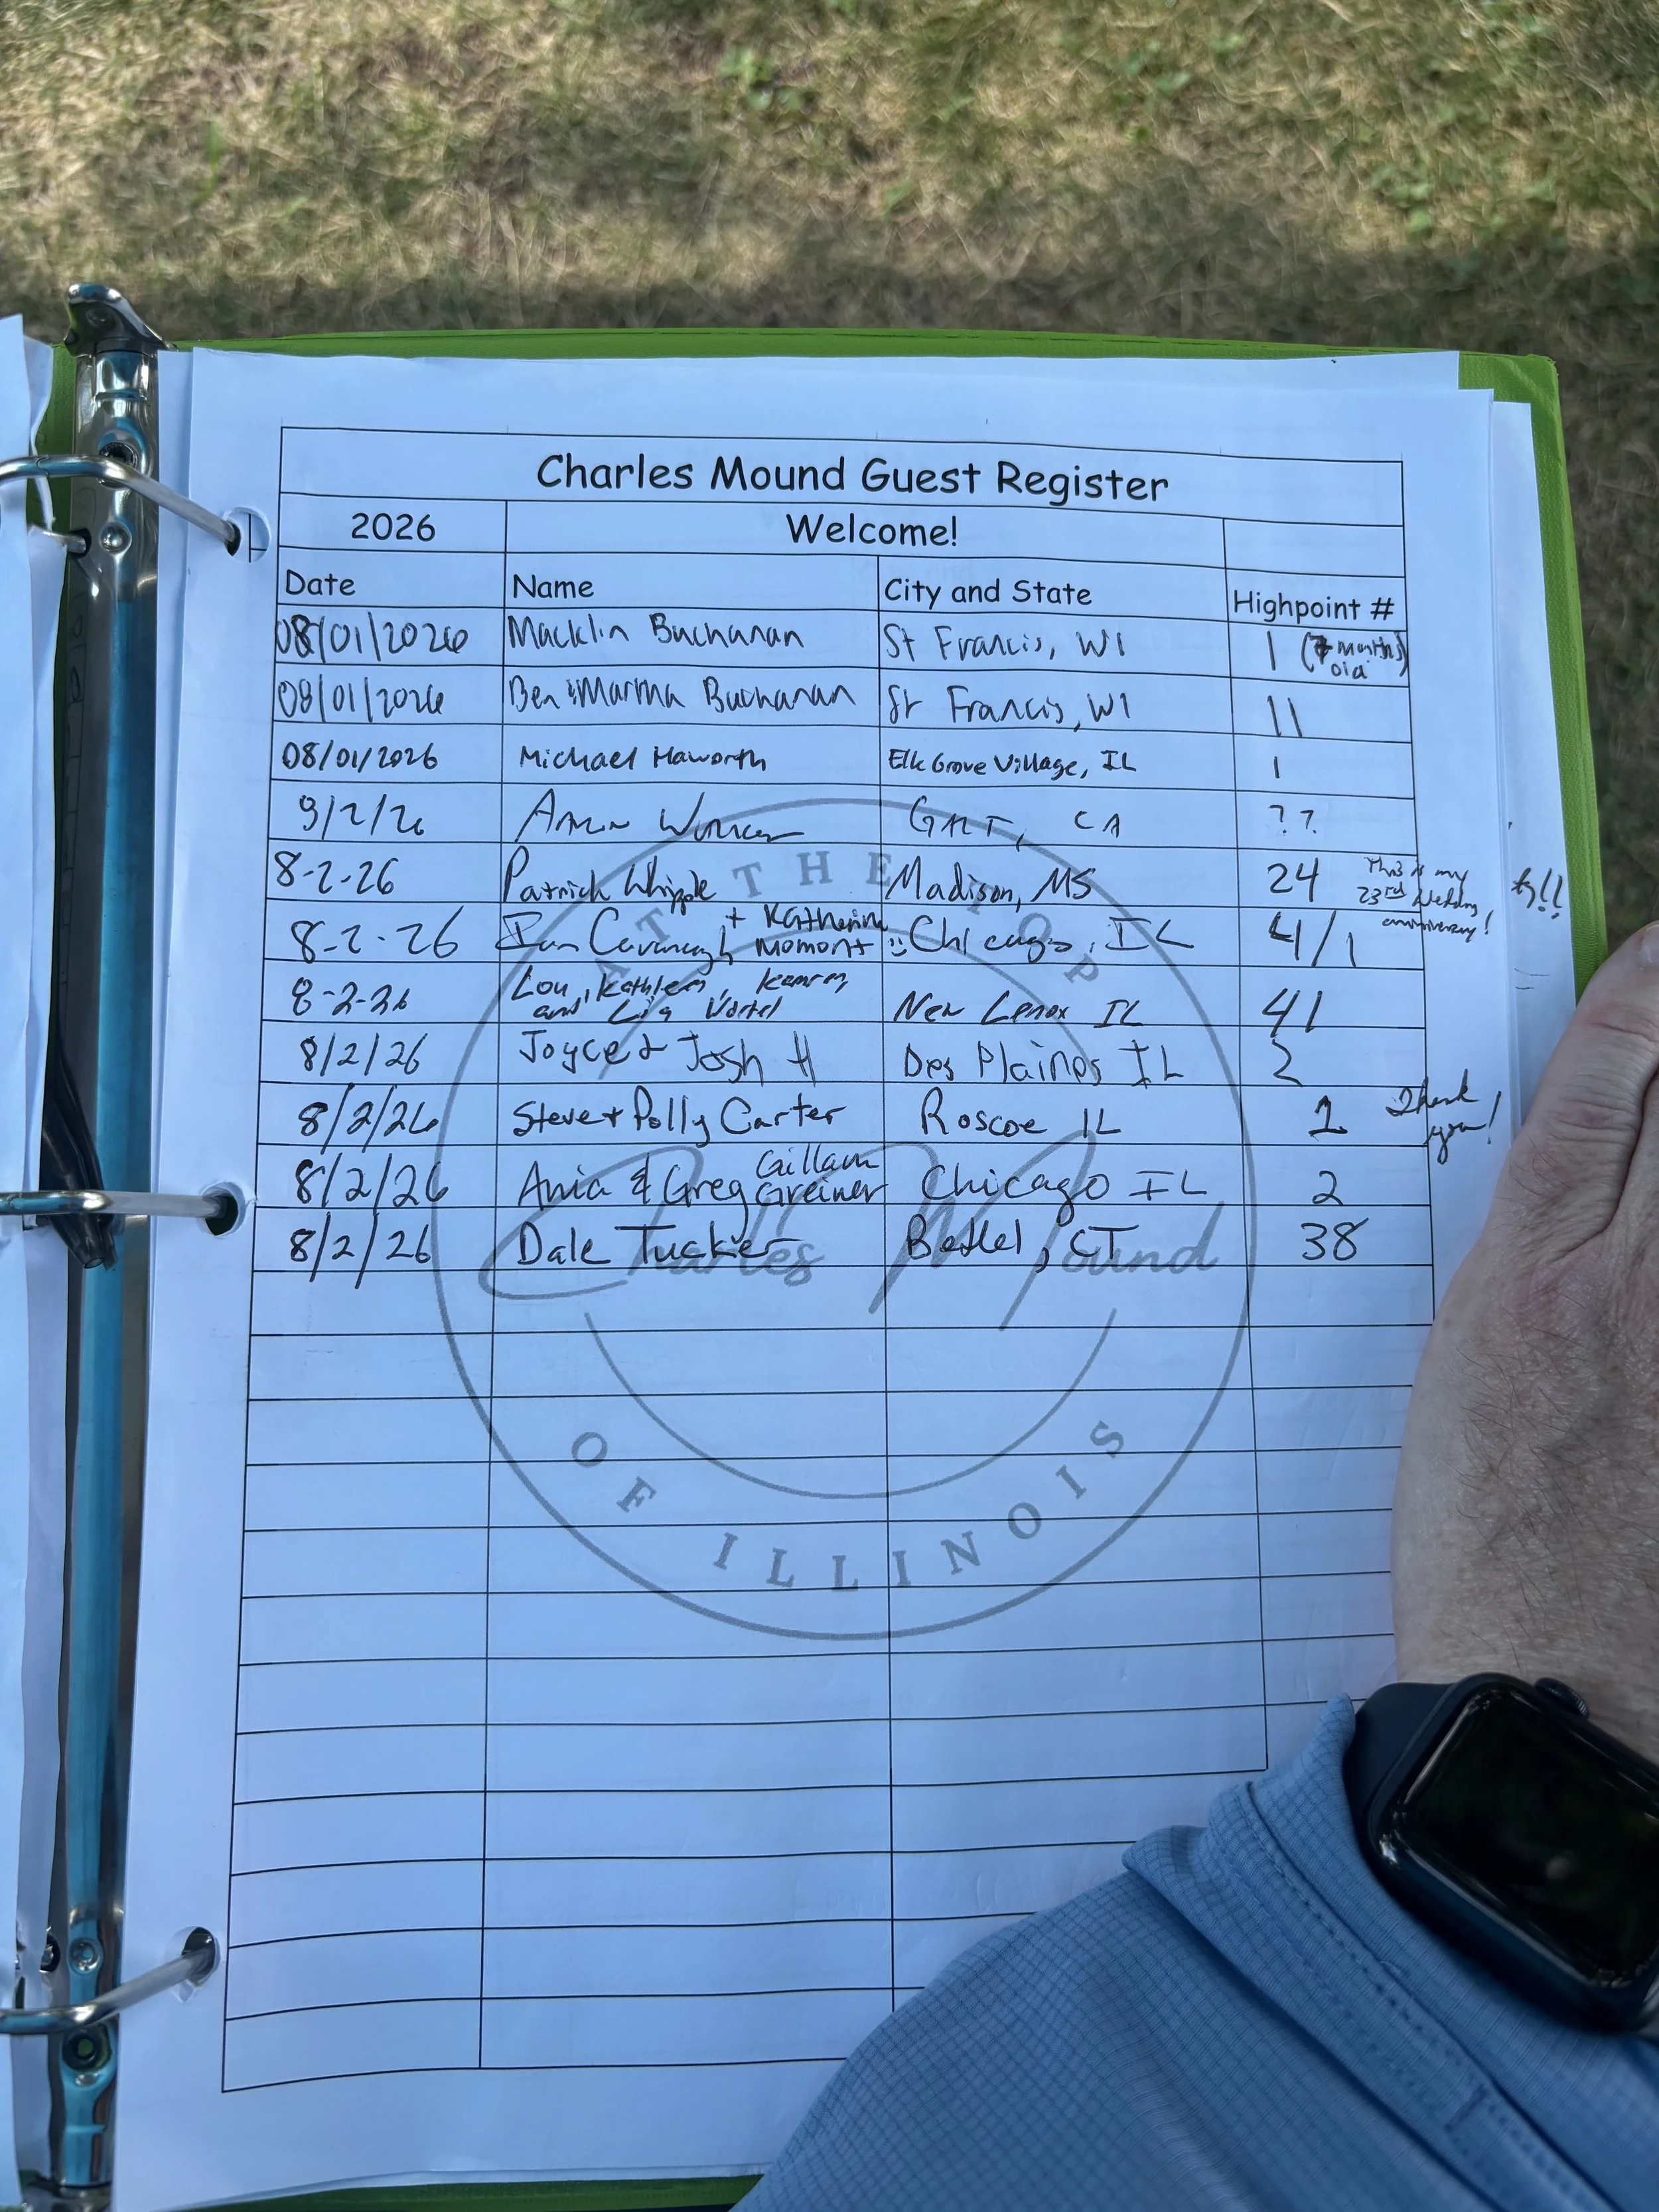 Charles Mound Guest Register
2026 Welcome!
Date Name City and State Highpoint #
08/01/2026 Macklin Buchanan St Francis, WI 1 (7 months old)
08/01/2026 Ben & Marma Buchanan St Francis, WI 11
08/01/2026 Michael Haworth Elk Grove Village, IL 1
9/2/26 CA ??
8-2-26 Patrick Whipple Madison, MS 24 This is my 23rd Wedding anniversary!
8-2-26 Ian Cavanagh + Katherine Momont :) Chicago, IL 4/1
8-2-26 Lou, Kathleen, and Lia New Lenox IL 41
8/2/26 Joyce & Josh H Des Plaines IL 2
8/2/26 Steve + Polly Carter Roscoe IL 1 Thank you!
8/2/26 Ania & Greg Gillam Greiner Chicago IL 2
8/2/26 Dale Tucker Bethel, CT 38
AT THE TOP
Charles Mound
OF ILLINOIS